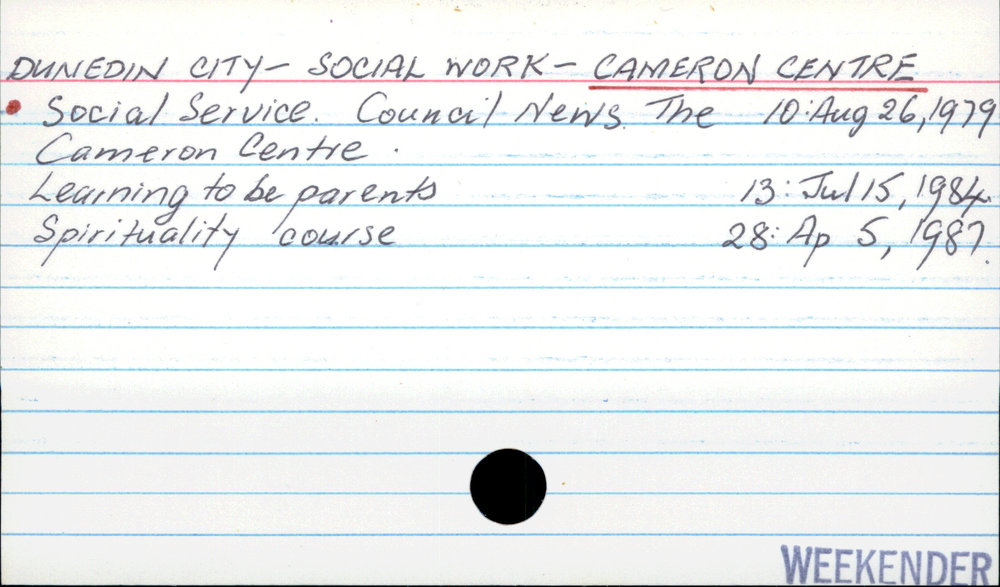 DUNEDIN CITY - SOCIAL WORK - CAMERON CENTRE
• Social Service. Council News. The 10: Aug 26, 1979
Cameron Centre.
Learning to be parents 13: Jul 15, 1984.
Spirituality course 28: Ap 5, 1987.
WEEKENDER